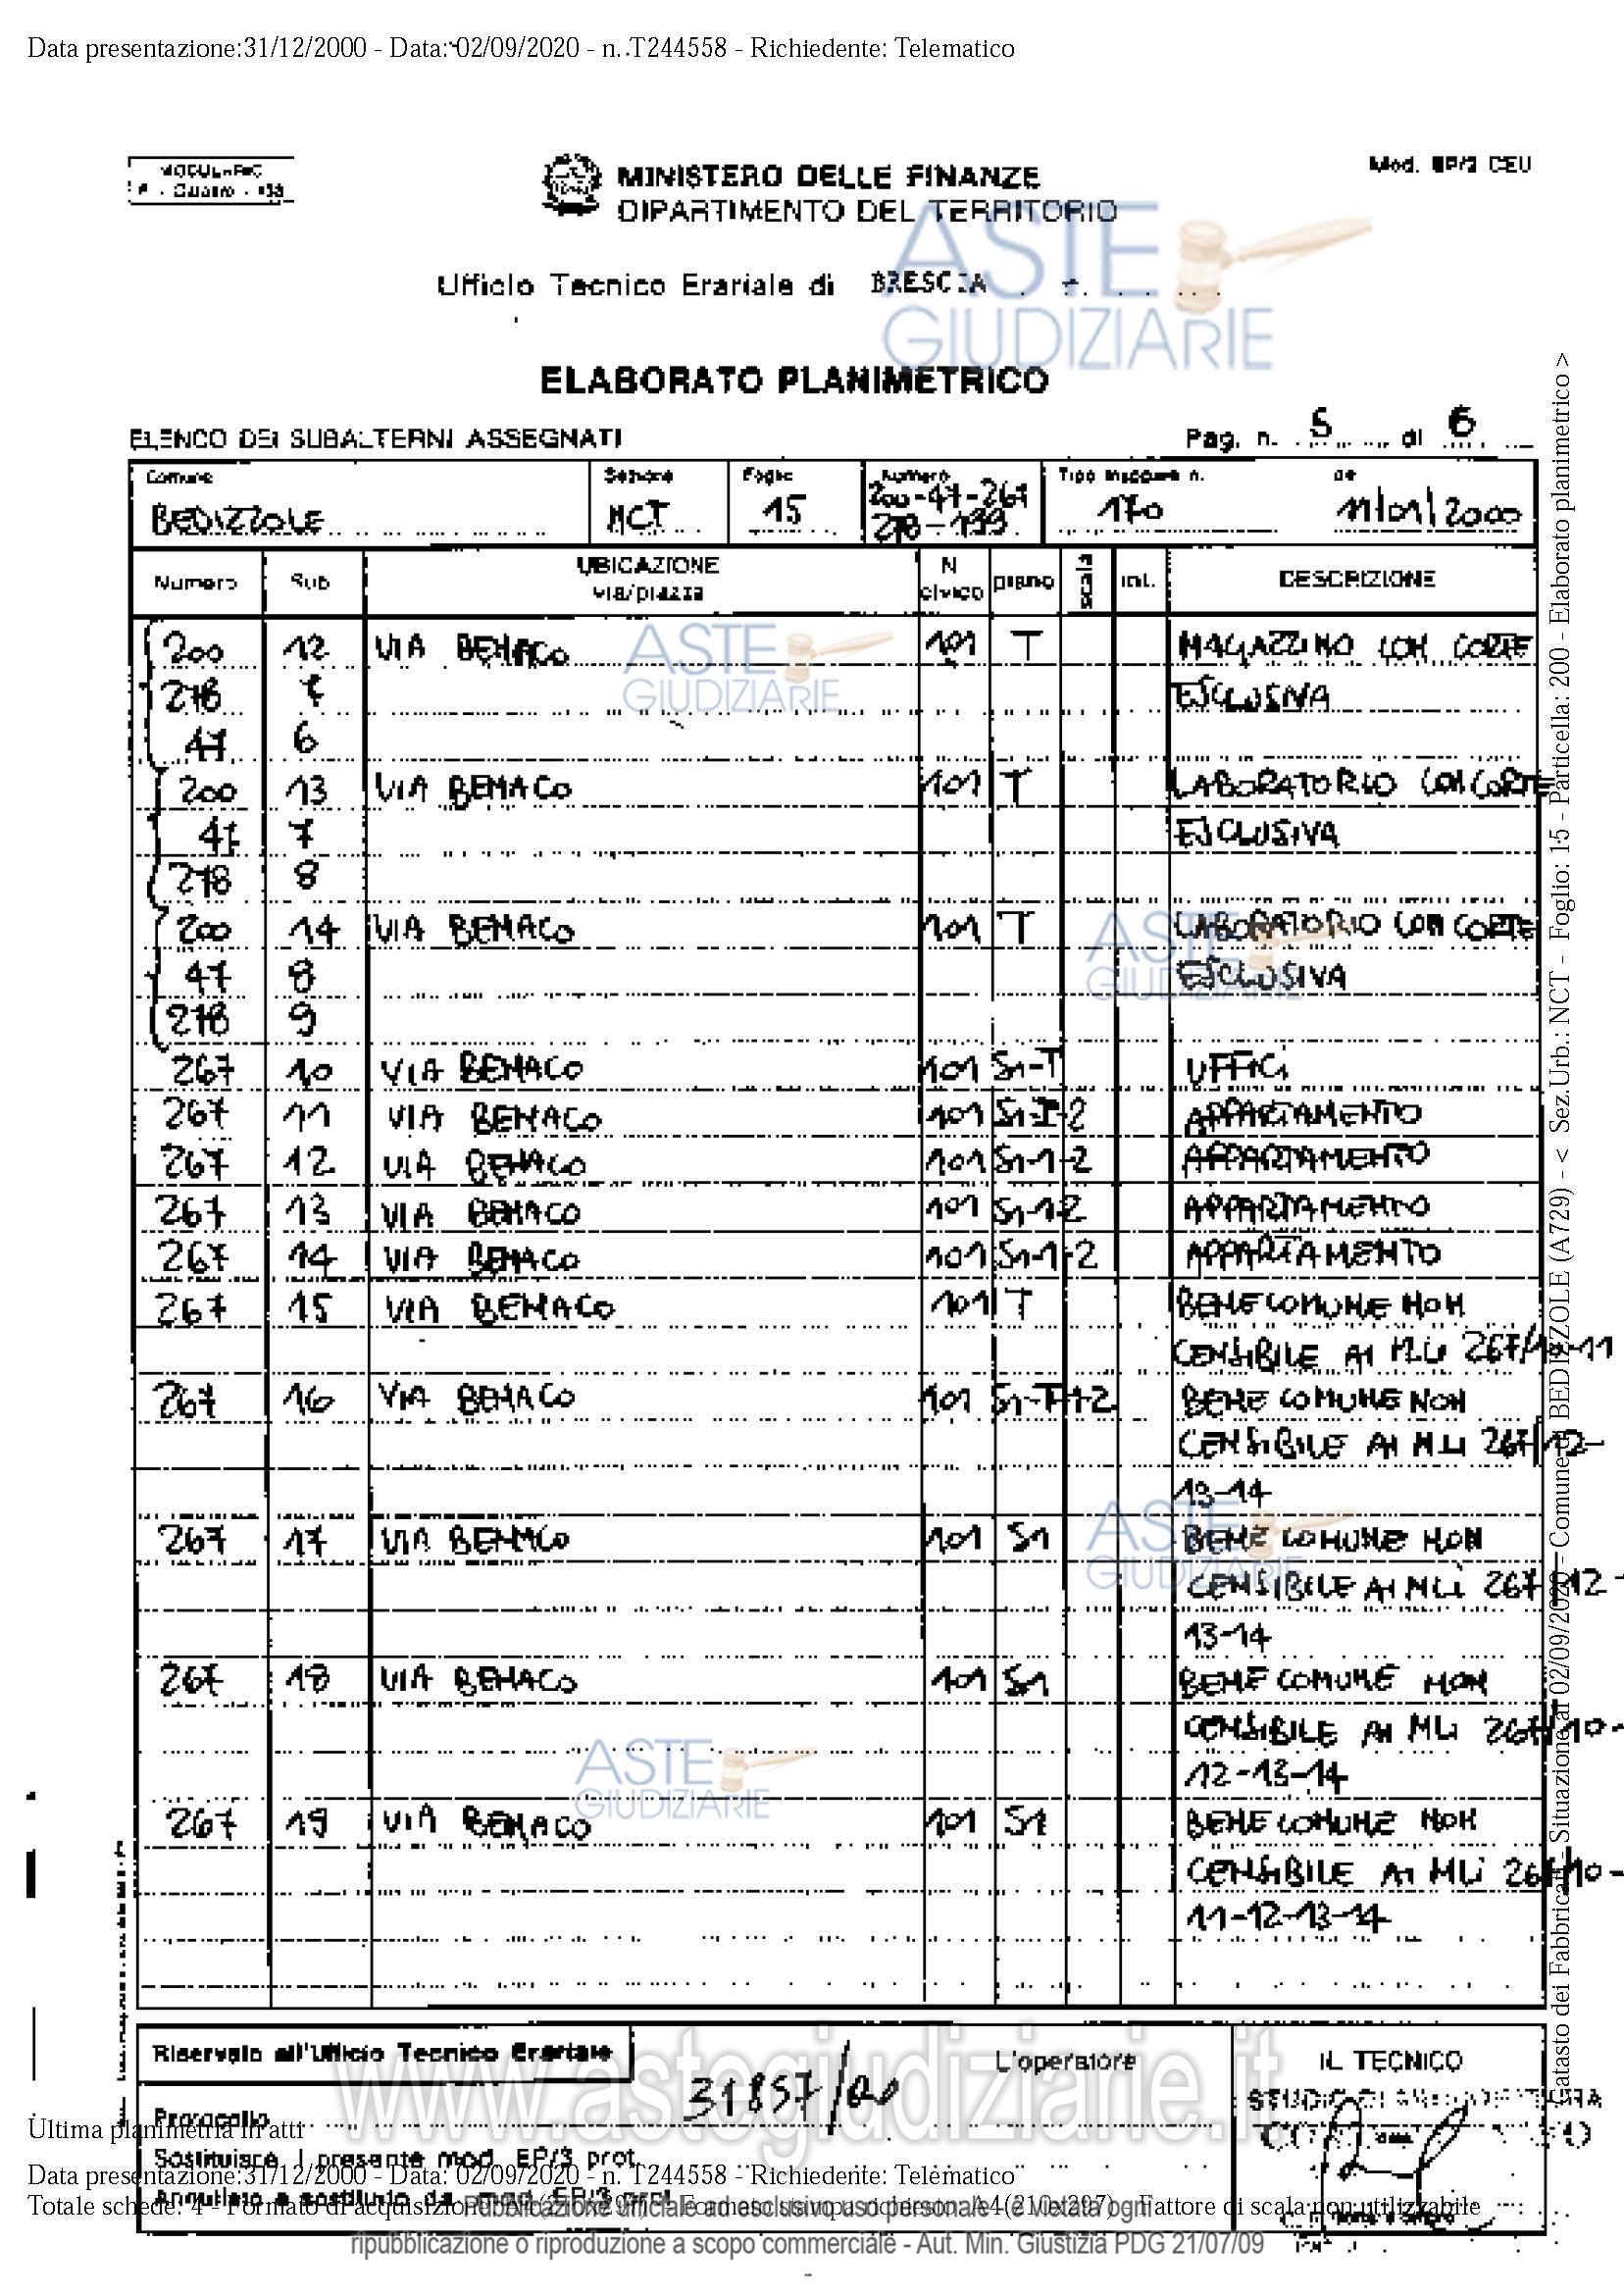 Data presentazione:31/12/2000 - Data: 02/09/2020 - n. T244558 - Richiedente: Telematico
MODULARIO
F. - Catasto - 
Mod. EP/3 CEU
MINISTERO DELLE FINANZE
DIPARTIMENTO DEL TERRITORIO
Ufficio Tecnico Erariale di BRESCIA
ASTE
GIUDIZIARIE
ELABORATO PLANIMETRICO
ELENCO DEI SUBALTERNI ASSEGNATI
Pag. n. 5 di 6
Comune Sezione Foglio Numero Tipo mappale n. del
BEDIZZOLE NCT 15 170 11/01/2000
Numero Sub UBICAZIONE via/piazza N civico piano scala int. DESCRIZIONE
200 12 VIA BENACO 101 T MAGAZZINO CON CORTE
218 7 ESCLUSIVA
47 6
200 13 VIA BENACO 101 T LABORATORIO CON CORTE
47 7 ESCLUSIVA
218 8
200 14 VIA BENACO 101 T LABORATORIO CON CORTE
47 8 ESCLUSIVA
218 9
267 10 VIA BENACO 101 S1-T UFFICI
267 11 VIA BENACO 101 APPARTAMENTO
267 12 VIA BENACO 101 S1-1-2 APPARTAMENTO
267 13 VIA BENACO 101 S1-1-2 APPARTAMENTO
267 14 VIA BENACO 101 S1-1-2 APPARTAMENTO
267 15 VIA BENACO 101 T BENE COMUNE NON
CENSIBILE AI 267/10-11
267 16 VIA BENACO 101 BENE COMUNE NON
CENSIBILE AI 267/12-
13-14
267 17 VIA BENACO 101 S1 BENE COMUNE NON
CENSIBILE AI 267/12-
13-14
267 18 VIA BENACO 101 S1 BENE COMUNE NON
CENSIBILE AI 267/10-
12-13-14
267 19 VIA BENACO 101 S1 BENE COMUNE NON
CENSIBILE AI 267/10-
11-12-13-14
Riservato all'Ufficio Tecnico Erariale
L'operatore
IL TECNICO
31857/00
Protocollo
Sostituisce il presente mod. EP/3 prot.
Annullato e sostituito da mod. EP/3 prot.
www.astegiudiziarie.it
Ultima planimetria in atti
Data presentazione:31/12/2000 - Data: 02/09/2020 - n. T244558 - Richiedente: Telematico
Totale schede: 4 - Formato di acquisizione: A4(210x297) - Formato stampa richiesto: A4(210x297) - Fattore di scala non utilizzabile
Pubblicazione ufficiale ad uso esclusivo personale - è vietata ogni
ripubblicazione o riproduzione a scopo commerciale - Aut. Min. Giustizia PDG 21/07/09
Catasto dei Fabbricati - Situazione al 02/09/2020 - Comune di BEDIZZOLE (A729) - < Sez.Urb.: NCT - Foglio: 15 - Particella: 200 - Elaborato planimetrico >